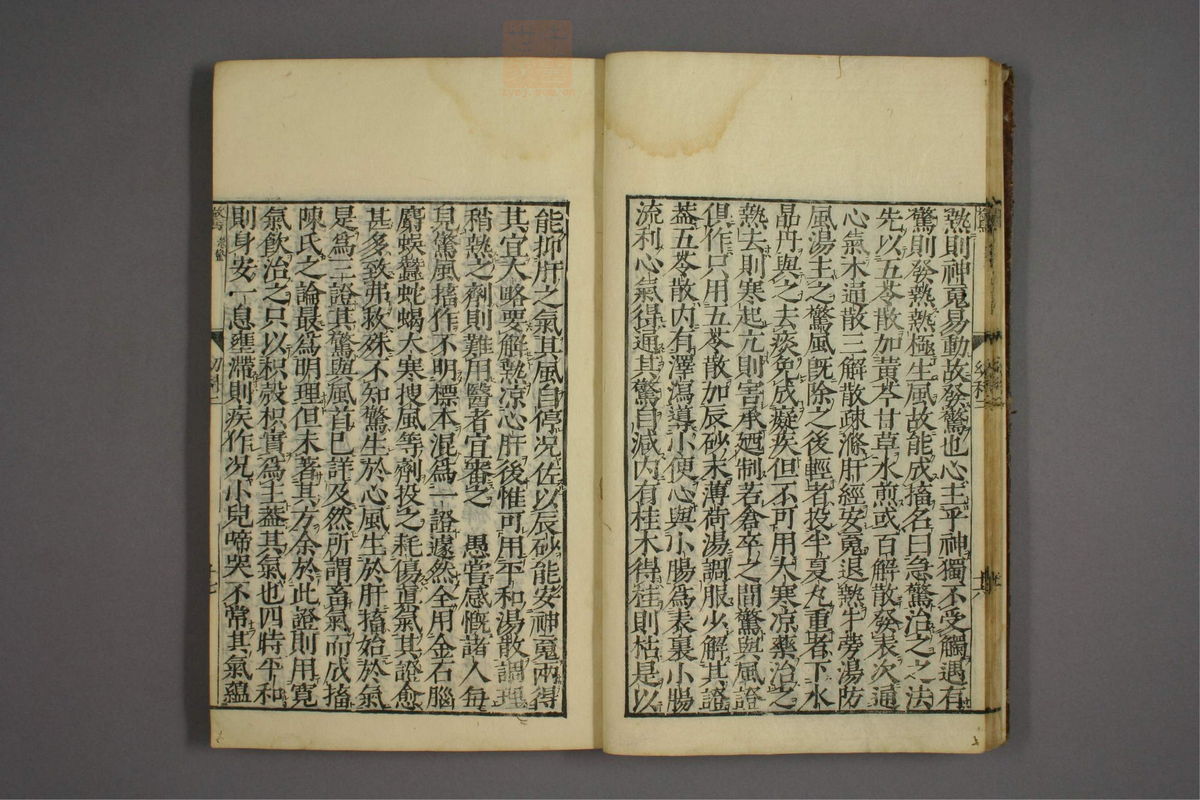 熱則神䰟易動故發驚也心主乎神獨不受觸遇有
驚則發熱熱極生風故能成搐名曰急驚治之之法
先以五苓散加黃芩甘草水煎或百解散發表次通
心氣木通散三解散疎滌肝經安䰟退熱牛蒡湯防
風湯主之驚風旣除之後輕者投半夏丸重者下水
晶丹與之去痰免成癡疾但不可用大寒凉藥治之
熱去則寒起亢則害承廼制若倉卒之間驚與風證
俱作只用五苓散加辰砂末薄荷湯調服少解其證
葢五苓散内有澤瀉導小便心與小腸為表裏小腸
流利心氣得通其驚自減内有桂木得桂則枯是以
能抑肝之氣其風自停况佐以辰砂能安神䰟兩得
其宜大略要解熱凉心肝後惟可用平和湯散調理
稍熱之劑則難用醫者宜審之　愚嘗感慨諸人每
見驚風搐作不明標本混為一證遽然全用金石腦
麝蜈蠶蛇蝎大寒搜風等劑投之耗傷眞氣其證愈
甚多致弗救殊不知驚生於心風生於肝搐始於氣
是為三證其驚與風首巳詳及然所謂畜氣而成搐
陳氏之論最為明理但未著其方余於此證則用寛
氣飲治之只以枳殼枳實為主葢其氣也四時平和
則身安一息壅滯則疾作况小兒啼哭不常其氣蘊